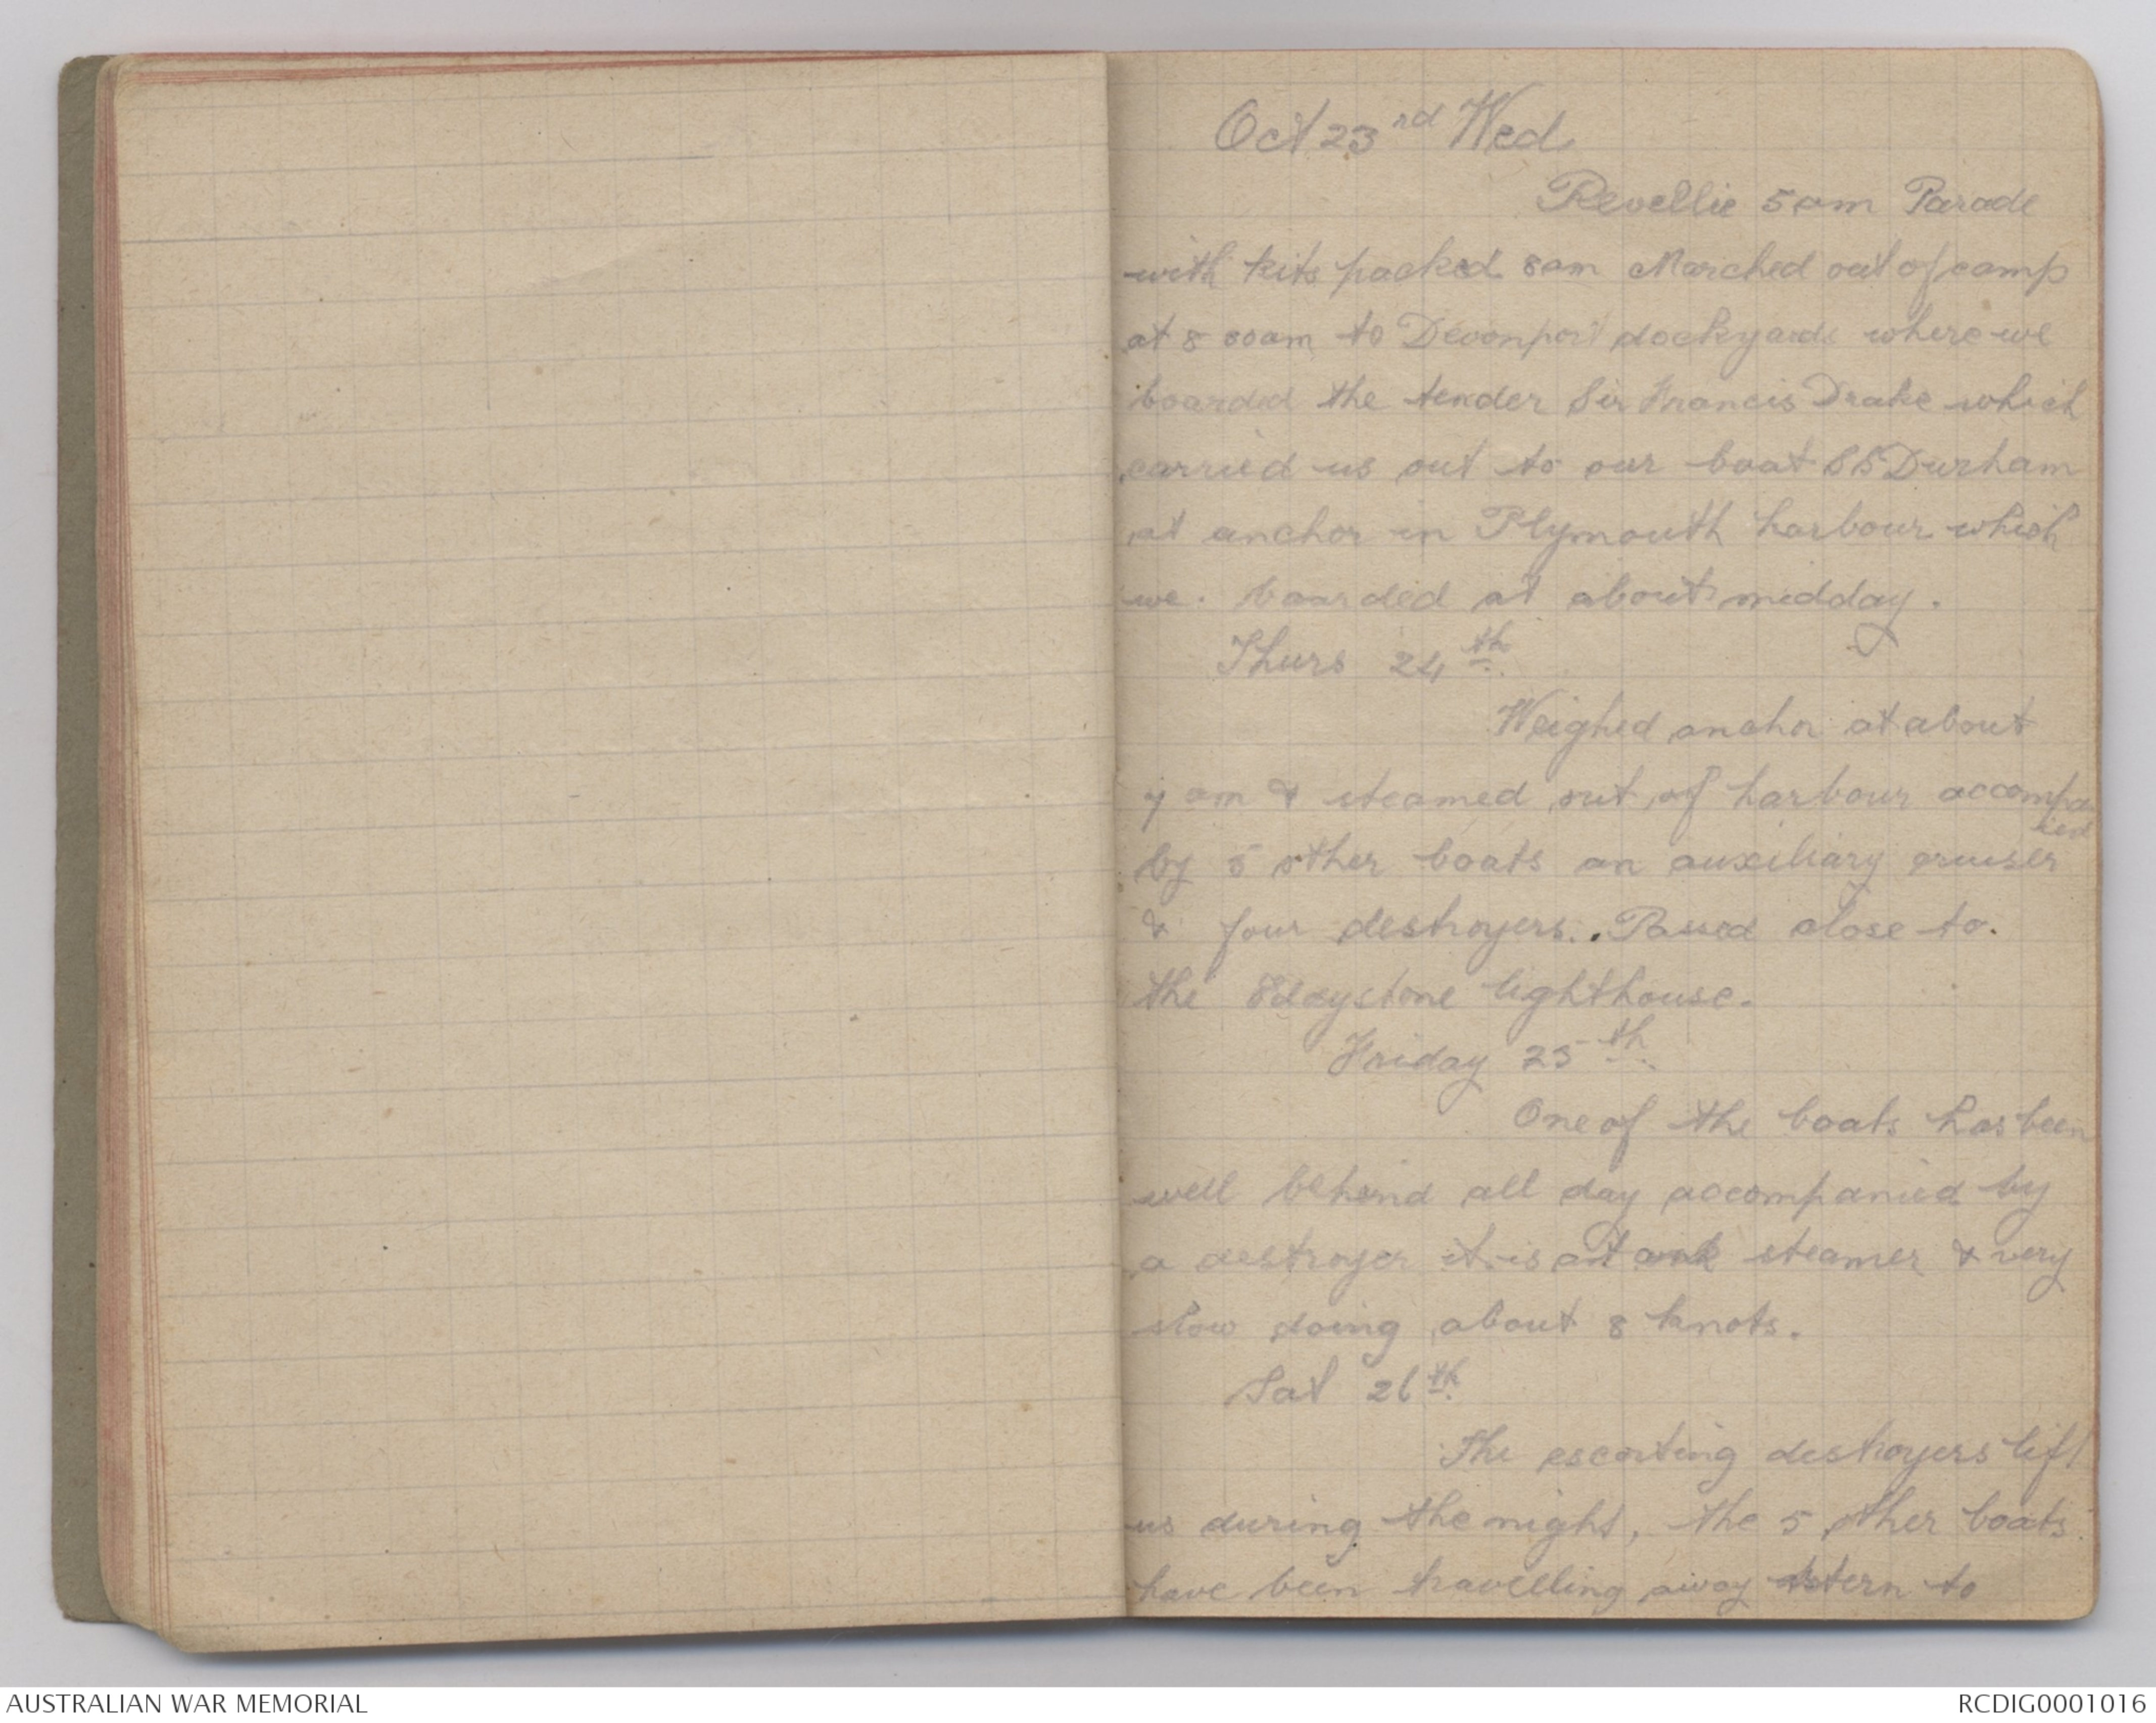 Oct 23rd Wed
Revellie 5am Parade
with kits packed 8am Marched out of camp
at 8 30am to Devonport dockyards where we
boarded the tender Sir Francis Drake which
carried us out to our boat SS Durham
at anchor in Plymouth harbour which
we. boarded at about midday.
Thurs 24th.
Weighed anchor at about
7 am & steamed out of harbour accompa
nied
by 5 other boats an auxiliary cruiser
& four destroyers.. Passed close to.
the Eddystone lighthouse.
Friday 25th.
One of the boats has been
well behind all day accompanied by
a destroyer it is a tank steamer & very
slow doing about 8 knots.
Sat 26th.
The escorting destroyers left
us during the night, the 5 other boats
have been travelling away astern to
AUSTRALIAN WAR MEMORIAL
RCDIG0001016